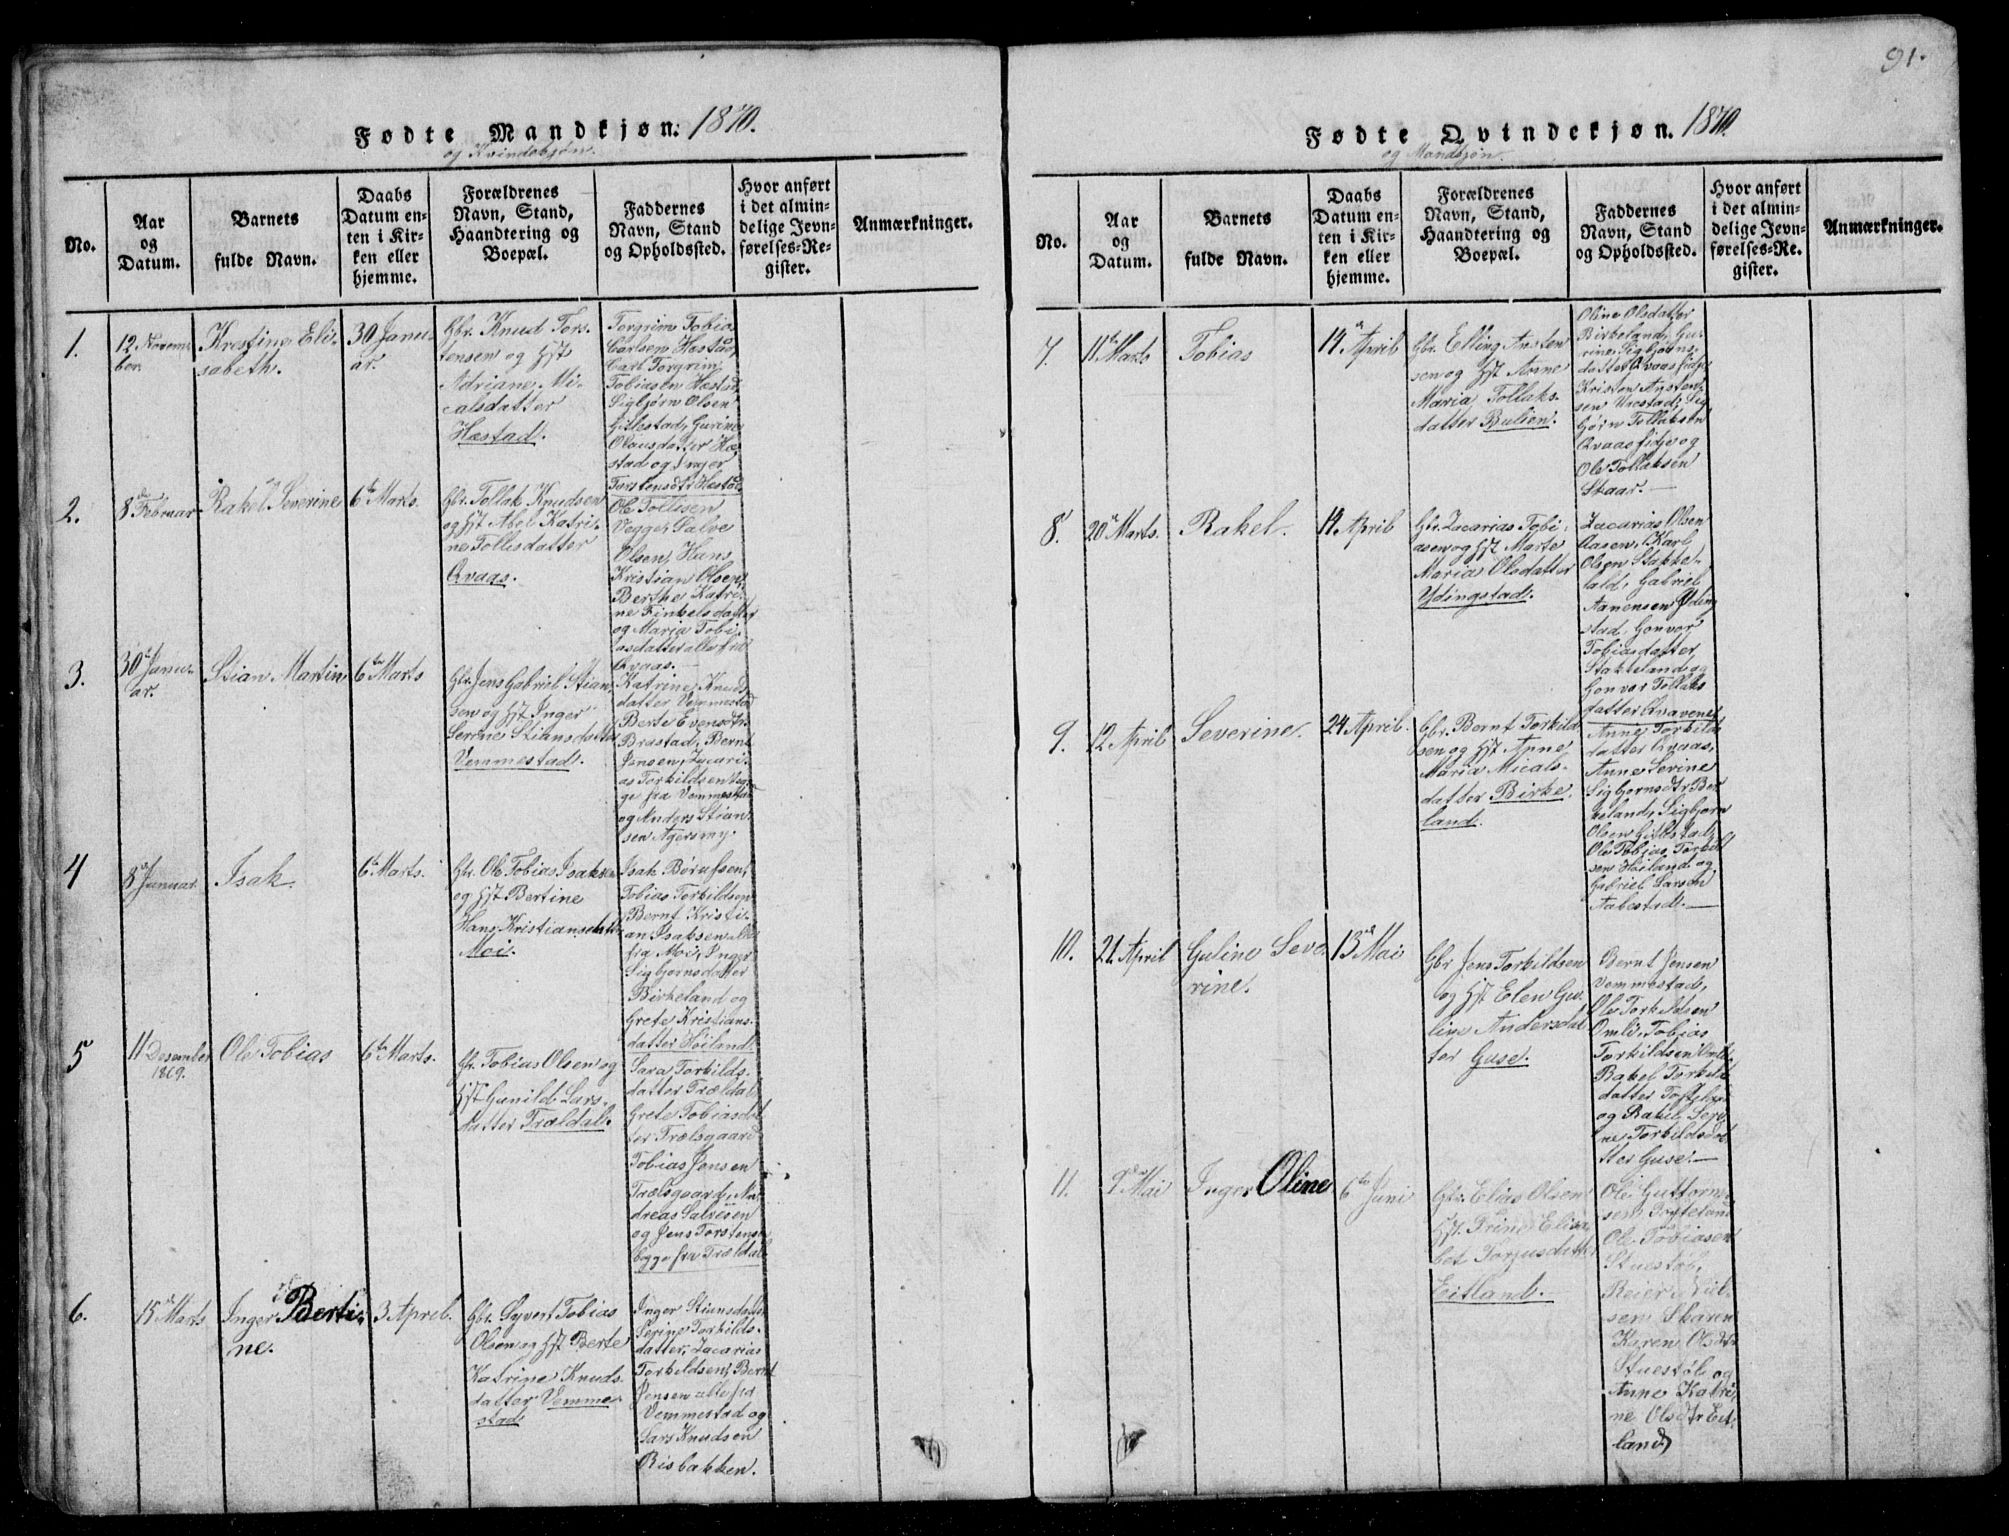 91.
Fødte Mandkjøn. 1870.
og Kvindekjøn.
No.
Aar
og
Datum.
Barnets
fulde Navn.
Daabs
Datum en-
ten i Kir-
ken eller
hjemme.
Forældrenes
Navn, Stand,
Haandtering og
Boepæl.
Faddernes
Navn, Stand
og Opholdssted.
Hvor anført
i det almin-
delige Jevn-
førelses-Re-
gister.
Anmærkninger.
1.
12 Novem-
ber.
Krestine Eli-
sabeth.
30 Janu-
ar.
Gbr. Knud Tors-
tensen og Hst
Adriane Mi-
calsdatter
Hæstad.
Torgrim Tobias
Carlsen Hæstad,
Carl Torgrim
Tobiasen Hæstad
Sigbjørn Olsen
Gitlestad, Gurine
Olausdatter Hæ-
stad og Inger
Torstensdtr Hæstad
2.
8de Februar
Rakel Severine
6te Marts.
Gbr. Tollak Knudsen
og Hst Abel Katri-
ne Tollisdatter
Qvaas.
Ole Tollisen
Vegge, Salve
Olsen, Hans
Kristian Olsen,
Berthe Katri-
ne Finkelsdatter
og Maria Tobi-
asdatter alle fra
Qvaas.
3.
30te Janu-
ar.
Stian Martin
6te Marts
Gbr. Jens Gabriel Stian-
sen og Hst Inger
Serine Stiansdatter
Vemmestad.
Katrine Knuds-
datter Vemmestad
Berte Evensdtr
Brastad, Bernt
Jensen, Zacari-
as Torkildsen beg-
ge fra Vemmestad
og Anders Stian-
sen Agersmy.
4
8de Januar
Isak
6te Marts.
Gbr. Ole Tobias Isaksen
og Hst Bertine
Hans Kristiansdatter
Moi.
Isak Børufsen,
Tobias Torkildsen
Bernt Kristi-
an Isaksen alle
fra Moi, Inger
Sigbjørnsdatter
Birkeland og
Grete Kristians-
datter Høiland.
5
11 Desember
1869.
Ole Tobias
6te Marts.
Gbr. Tobias Olsen og
Hst Gunild Lars-
datter Trældal.
Sara Torkilds-
datter Trældal
Grete Tobiasdat-
ter Trælsgaard
Tobias Jensen
Trælsgaard, An-
dreas Salvesen
og Jens Torstensen
begge fra Trældal
6.
15de Marts
Inger Berti-
ne.
3 April.
Gbr. Syvert Tobias
Olsen og Hst Berte
Katrine Knuds-
datter Vemme-
stad
Inger Stiansdatter
Serine Torkilds-
datter, Zacarias
Torkildsen, Bernt
Jensen alle fra
Vemmestad og
Lars Knudsen
Risbakken.
Fødte Qvindekjøn. 1870.
og Mandkjøn.
No.
Aar
og
Datum.
Barnets
fulde Navn.
Daabs
Datum en-
ten i Kir-
ken eller
hjemme.
Forældrenes
Navn, Stand,
Haandtering og
Boepæl.
Faddernes
Navn, Stand
og Opholdssted.
Hvor anført
i det almin-
delige Jevn-
førelses-Re-
gister.
Anmærkninger.
7.
11te Marts
Tobias
14 April
Gbr. Elling Ansten-
sen og Hst Anne
Maria Tollaks-
datter Bulien.
Oline Olsdatter
Birkeland, Gu-
rine Sigbjørns-
datter Qvaasfidje
Kristen Ansten-
sen Vrastad, Sig-
bjørn Tollaksen
Qvaasfidje og
Ole Tollaksen
Staar.
8.
20de Marts.
Rakel.
14 April
Gbr. Zacarias Tobi-
asen og Hst Marte
Maria Olsdatter
Ydingstad.
Zacarias Olsen
Aasen, Karl
Olsen Stakke-
land, Gabriel
Aanensen Yding
stad, Gonvor
Tobiasdatter
Stakkeland og
Gonvor Tollaks-
datter Qvavenes
9.
12 April
Severine.
24 April.
Gbr. Bernt Torkild-
sen og Hst Anne
Maria Micals-
datter Birke-
land.
Anne Torkilds-
datter Qvaas,
Anne Serine
Sigbjørnsdtr Bir-
keland, Sigbjørn
Olsen Gitlestad,
Ole Tobias Torkild-
sen Høiland og
Gabriel Larsen
Aabestad.
10.
21. April
Guline Seve-
rine.
13de Mai
Gbr Jens Torkildsen
og Hst Elen Gu-
line Andersdat-
ter Guse.
Bernt Jensen
Vemmestad,
Ole Torkildsen
Omli, Tobias
Torkildsen Omli
Rakel Torkilds-
datter
og Rakel Seri-
ne Torkildsdat-
ter Guse.
11.
9de Mai
Inger Oline
6te Juni
Gbr. Elias Olsen
Hst. Trine Elisa-
bet Torjusdatter
Eitland.
Ole Guttorm-
sen
Ole Tobiasen
Stuestøl,
Reier Nil-
sen Skaren
Karen Olsdtr
Stuestøl og
Anne Katri-
ne Olsdtr Eit-
land